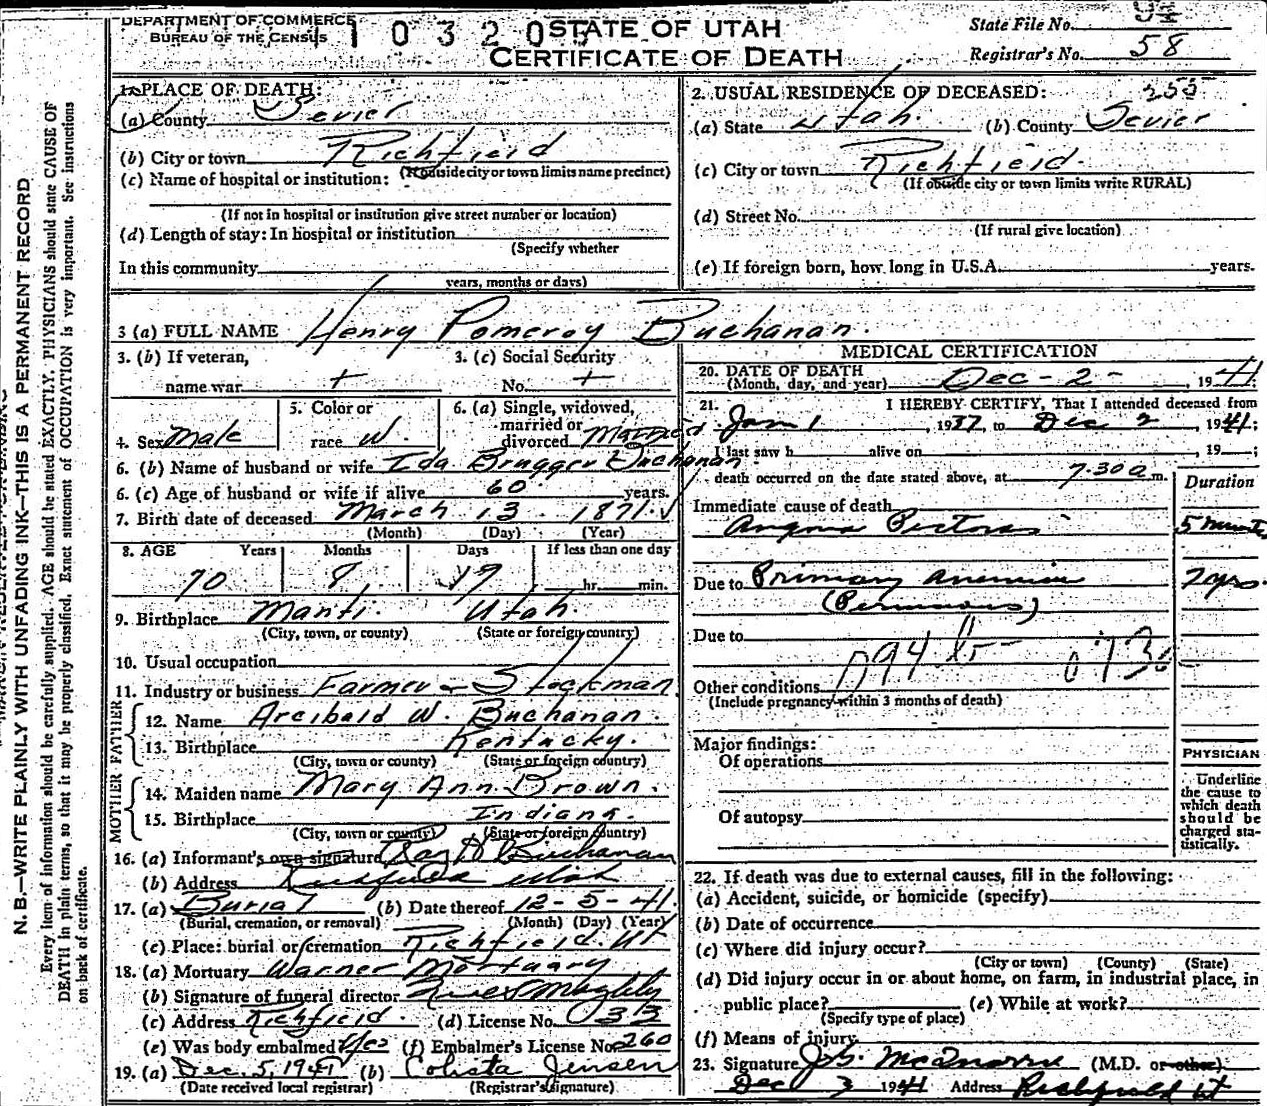 DEPARTMENT OF COMMERCE
BUREAU OF THE CENSUS
1 0 3 2 0
STATE OF UTAH
CERTIFICATE OF DEATH
State File No.
Registrar's No. 58
1. PLACE OF DEATH:
(a) County Sevier
(b) City or town Richfield
(If outside city or town limits name precinct)
(c) Name of hospital or institution:
(If not in hospital or institution give street number or location)
(d) Length of stay: In hospital or institution
(Specify whether
In this community
years, months or days)
2. USUAL RESIDENCE OF DECEASED: 255
(a) State Utah (b) County Sevier
(c) City or town Richfield.
(If outside city or town limits write RURAL)
(d) Street No.
(If rural give location)
(e) If foreign born, how long in U.S.A. years.
3 (a) FULL NAME Henry Pomeroy Buchanan.
3. (b) If veteran,
name war +
3. (c) Social Security
No. +
4. Sex Male
5. Color or
race W.
6. (a) Single, widowed,
married or
divorced Married
6. (b) Name of husband or wife Ida Brugger Buchanan
6. (c) Age of husband or wife if alive 60 years.
7. Birth date of deceased March 13. 1871.
(Month) (Day) (Year)
8. AGE Years Months Days If less than one day
70 8 19 hr. min.
9. Birthplace Manti. Utah.
(City, town, or county) (State or foreign country)
10. Usual occupation
11. Industry or business Farmer & Stockman
FATHER
12. Name Arcibald W. Buchanan.
13. Birthplace Kentucky.
(City, town or county) (State or foreign country)
MOTHER
14. Maiden name Mary Ann Brown.
15. Birthplace Indiana.
(City, town or county) (State or foreign country)
16. (a) Informant's own signature Ray H Buchanan
(b) Address Richfield Utah
17. (a) Burial (b) Date thereof 12-5-41.
(Burial, cremation, or removal) (Month) (Day) (Year)
(c) Place: burial or cremation Richfield. Ut
18. (a) Mortuary Warner Mortuary
(b) Signature of funeral director
(c) Address Richfield. (d) License No. 33
(e) Was body embalmed Yes (f) Embalmer's License No. 260
19. (a) Dec. 5, 1941 (b) Colista Jensen
(Date received local registrar) (Registrar's signature)
MEDICAL CERTIFICATION
20. DATE OF DEATH
(Month, day, and year) Dec-2-, 1941;
21. I HEREBY CERTIFY, That I attended deceased from
Jan 1, 1937, to Dec 2, 1941;
I last saw h alive on , 19 ;
death occurred on the date stated above, at 7.30 a m.
Duration
Immediate cause of death
Angina Pectoris 5 minutes
Due to Primary Anemia 7 yrs.
(Pernicious)
Due to
094
Other conditions
(Include pregnancy within 3 months of death)
Major findings:
Of operations
Of autopsy
PHYSICIAN
Underline
the cause to
which death
should be
charged sta-
tistically.
22. If death was due to external causes, fill in the following:
(a) Accident, suicide, or homicide (specify)
(b) Date of occurrence
(c) Where did injury occur?
(City or town) (County) (State)
(d) Did injury occur in or about home, on farm, in industrial place, in
public place? (e) While at work?
(Specify type of place)
(f) Means of injury
23. Signature (M.D. or other)
Dec 3 1941 Address Richfield Ut
N. B.—WRITE PLAINLY WITH UNFADING INK—THIS IS A PERMANENT RECORD
Every item of information should be carefully supplied. AGE should be stated EXACTLY. PHYSICIANS should state CAUSE OF
DEATH in plain terms, so that it may be properly classified. Exact statement of OCCUPATION is very important. See instructions
on back of certificate.